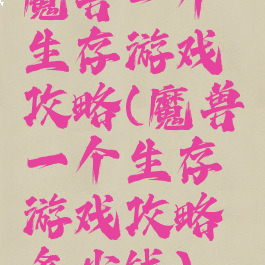 魔兽一个
生存游戏
攻略(魔兽
一个生存
游戏攻略
多少钱)